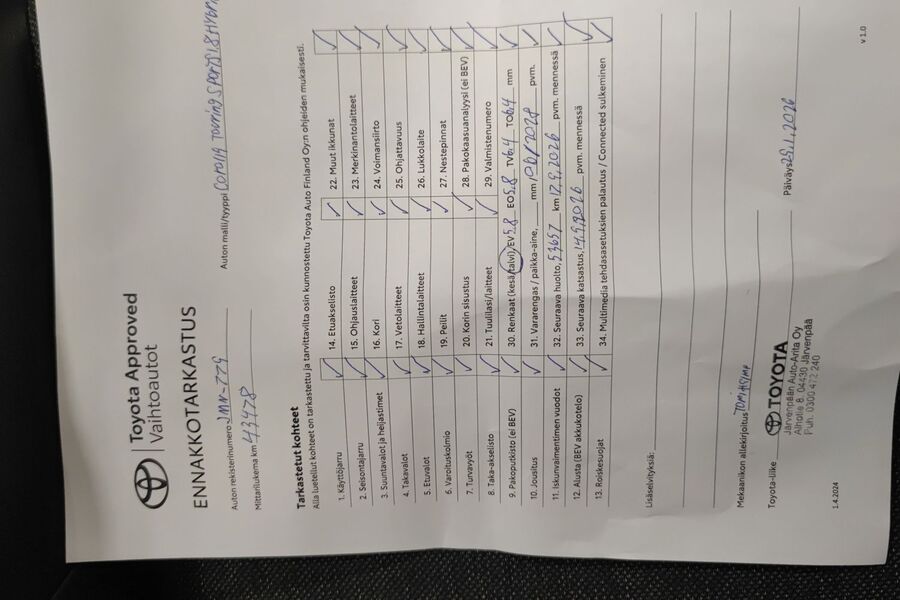 Toyota Approved
Vaihtoautot
ENNAKKOTARKASTUS
Auton rekisterinumero JMN-779 Auton malli/tyyppi Corolla Touring Sport 1,8 Hybrid
Mittarilukema km 43478
Tarkastetut kohteet
Alla luetellut kohteet on tarkastettu ja tarvittavilta osin kunnostettu Toyota Auto Finland Oy:n ohjeiden mukaisesti.
1. Käyttöjarru ✓ 14. Etuakselisto ✓ 22. Muut ikkunat ✓
2. Seisontajarru ✓ 15. Ohjauslaitteet ✓ 23. Merkinantolaitteet ✓
3. Suuntavalot ja heijastimet ✓ 16. Kori ✓ 24. Voimansiirto ✓
4. Takavalot ✓ 17. Vetolaitteet ✓ 25. Ohjattavuus ✓
5. Etuvalot ✓ 18. Hallintalaitteet ✓ 26. Lukkolaite ✓
6. Varoituskolmio ✓ 19. Peilit ✓ 27. Nestepinnat ✓
7. Turvavyöt ✓ 20. Korin sisustus ✓ 28. Pakokaasuanalyysi (ei BEV) ✓
8. Taka-akselisto ✓ 21. Tuulilasi/laitteet ✓ 29. Valmistenumero ✓
9. Pakoputkisto (ei BEV) ✓ 30. Renkaat (kesä/talvi), EV 5.8 EO 5.8 TV 6.4 TO 6.4 mm ✓
10. Jousitus ✓ 31. Vararengas / paikka-aine, mm 06/2028 pvm. ✓
11. Iskunvaimentimen vuodot ✓ 32. Seuraava huolto, 53657 km 12.9.2026 pvm. mennessä ✓
12. Alusta (BEV akkukotelo) ✓ 33. Seuraava katsastus, 14.9.2026 pvm. mennessä ✓
13. Roiskesuojat ✓ 34. Multimedia tehdasasetuksien palautus / Connected sulkeminen ✓
Lisäselvityksiä:
Mekaanikon allekirjoitus
Toyota-liike TOYOTA Päiväys 29.1.2026
Järvenpään Auto-Arita Oy
Alholie 8, 04430 Järvenpää
Puh. 0300 472 240
1.4.2024 v 1.0